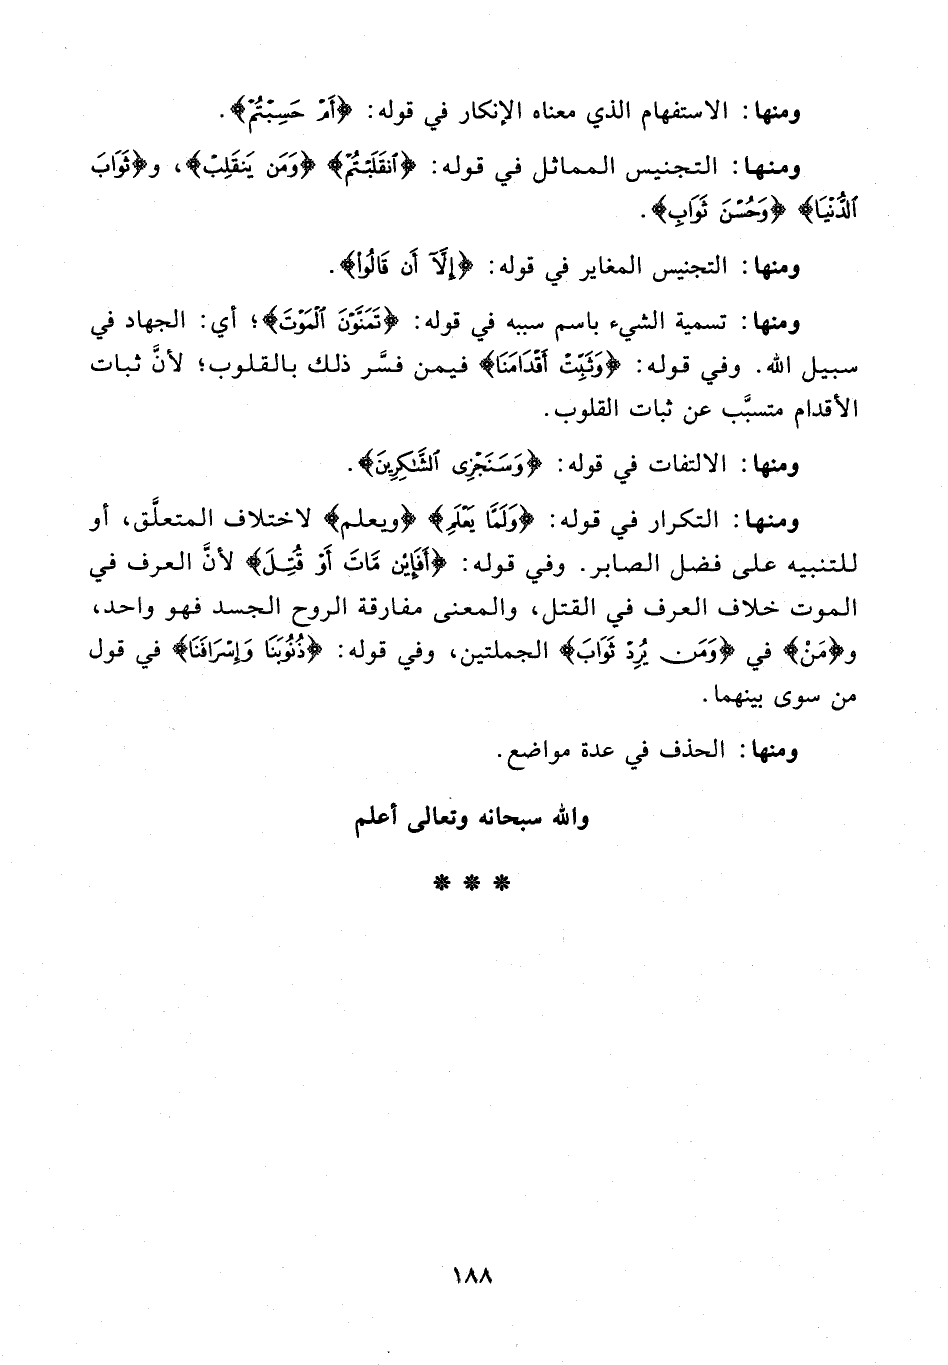 ومنها: الاستفهام الذي معناه الإنكار في قوله: ﴿أَمْ حَسِبْتُمْ﴾.
ومنها: التجنيس المماثل في قوله: ﴿ٱنقَلَبْتُمْ﴾ ﴿وَمَن يَنقَلِبْ﴾، و﴿ثَوَابَ
ٱلدُّنْيَا﴾ ﴿وَحُسْنَ ثَوَابِ﴾.
ومنها: التجنيس المغاير في قوله: ﴿إِلَّآ أَن قَالُوا۟﴾.
ومنها: تسمية الشيء باسم سببه في قوله: ﴿تَمَنَّوْنَ ٱلْمَوْتَ﴾؛ أي: الجهاد في
سبيل الله. وفي قوله: ﴿وَثَبِّتْ أَقْدَامَنَا﴾ فيمن فسَّر ذلك بالقلوب؛ لأنَّ ثبات
الأقدام متسبَّب عن ثبات القلوب.
ومنها: الالتفات في قوله: ﴿وَسَنَجْزِى ٱلشَّٰكِرِينَ﴾.
ومنها: التكرار في قوله: ﴿وَلَمَّا يَعْلَمِ﴾ ﴿ويعلم﴾ لاختلاف المتعلَّق، أو
للتنبيه على فضل الصابر. وفي قوله: ﴿أَفَإِيْن مَّاتَ أَوْ قُتِلَ﴾ لأنَّ العرف في
الموت خلاف العرف في القتل، والمعنى مفارقة الروح الجسد فهو واحد،
و﴿مَنْ﴾ في ﴿وَمَن يُرِدْ ثَوَابَ﴾ الجملتين، وفي قوله: ﴿ذُنُوبَنَا وَإِسْرَافَنَا﴾ في قول
من سوى بينهما.
ومنها: الحذف في عدة مواضع.
والله سبحانه وتعالى أعلم
* * *
١٨٨